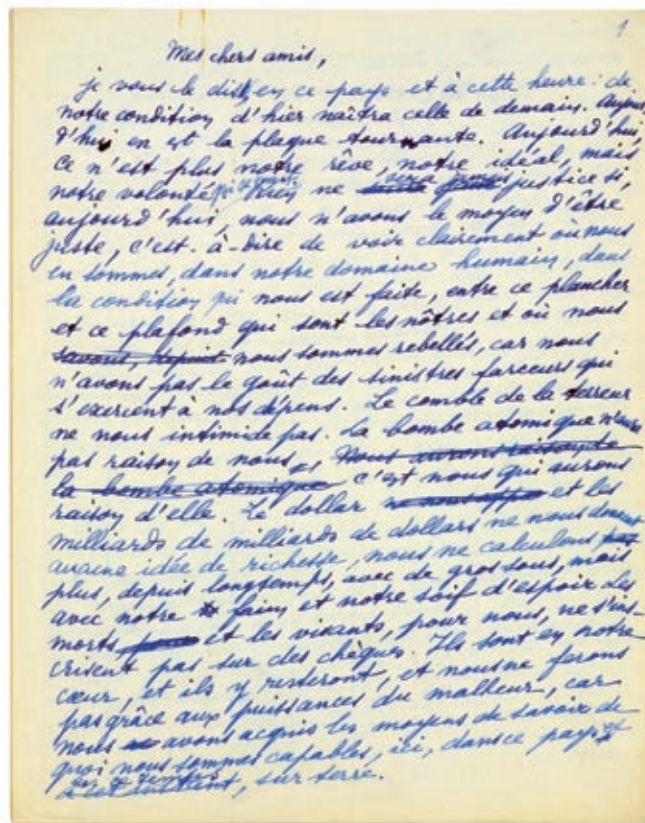 1
Mes chers amis,
je vous le dis, en ce pays et à cette heure : de
notre condition d'hier naîtra celle de demain. Aujour
d'hui en est la plaque tournante. Aujourd'hui,
ce n'est plus notre rêve, notre idéal, mais
notre volonté Rien ne sera jamais justice si,
aujourd'hui, nous n'avons le moyen d'être
juste, c'est-à-dire de voir clairement où nous
en sommes, dans notre domaine humain, dans
la condition qui nous est faite, entre ce plancher
et ce plafond qui sont les nôtres et où nous
savons, depuis nous sommes rebellés, car nous
n'avons pas le goût des sinistres farceurs qui
s'exercent à nos dépens. Le comble de la terreur
ne nous intimide pas. La bombe atomique n'aura
pas raison de nous, Nous aurons raison de
la bombe atomique c'est nous qui aurons
raison d'elle. Le dollar et les
milliards de milliards de dollars ne nous donnent
aucune idée de richesse, nous ne calculons pas
plus, depuis longtemps, avec de gros sous, mais
avec notre faim et notre soif d'espoir. Les
morts et les vivants, pour nous, ne s'ins-
crivent pas sur des chèques. Ils sont en notre
cœur, et ils y resteront, et nous ne ferons
pas grâce aux puissances du malheur, car
nous avons acquis les moyens de savoir de
quoi nous sommes capables, ici, dans ce pays et
en ce temps
à cet instant, sur terre.